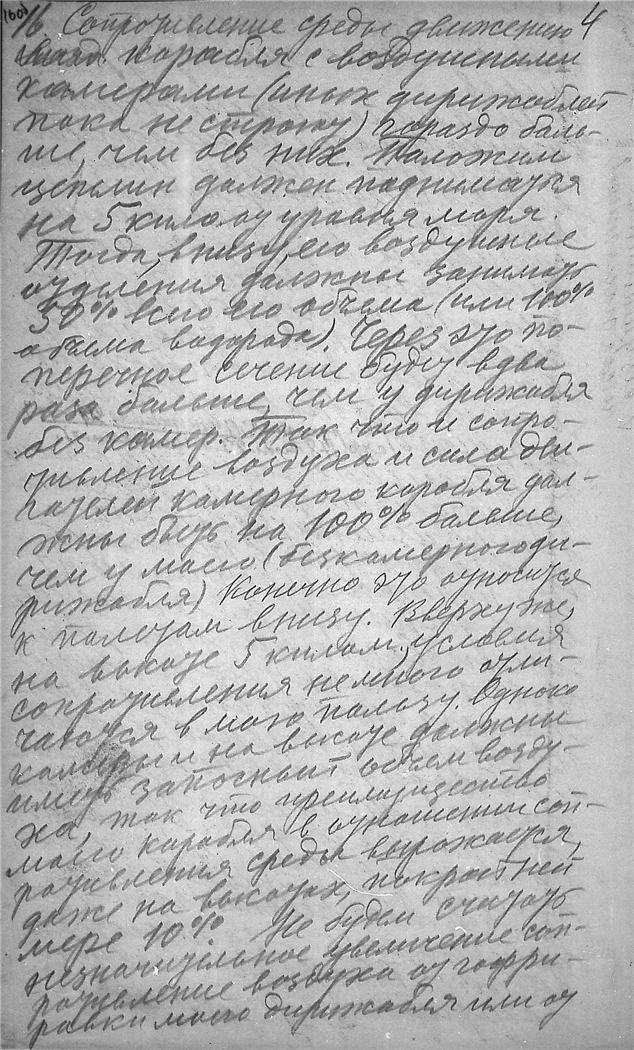 16 Сопротивление среды движению 4
возд. корабля с воздушными
камерами (иных дирижаблей
пока не строют) гораздо боль-
ше, чем без них. Положим
цепелин должен подниматься
на 5 кило. от уровня моря.
Тогда, внизу, его воздушные
отделения должны занимать
50% всего его объема (или 100%
объема водорода). Через это по-
перечное сечение будет в два
раза больше, чем у дирижабля
без камер. Так что и сопро-
тивление воздуха и сила дви-
гателей камерного корабля дол-
жны быть на 100% больше,
чем у моего (безкамерного ди-
рижабля) Конечно это относится
к полетам внизу. Вверху же,
на высоте 5 килом. условия
сопротивления немного отли-
чаются в мою пользу. Однако
камеры и на высоте должны
иметь запасный объем возду-
ха, так что преимущество
моего корабля в отношении соп-
ротивления среды выражается,
даже на высотах, по крайней
мере 10% Не будем считать
незначительное увеличение соп-
ротивление воздуха от гофри-
ровки моего дирижабля или от